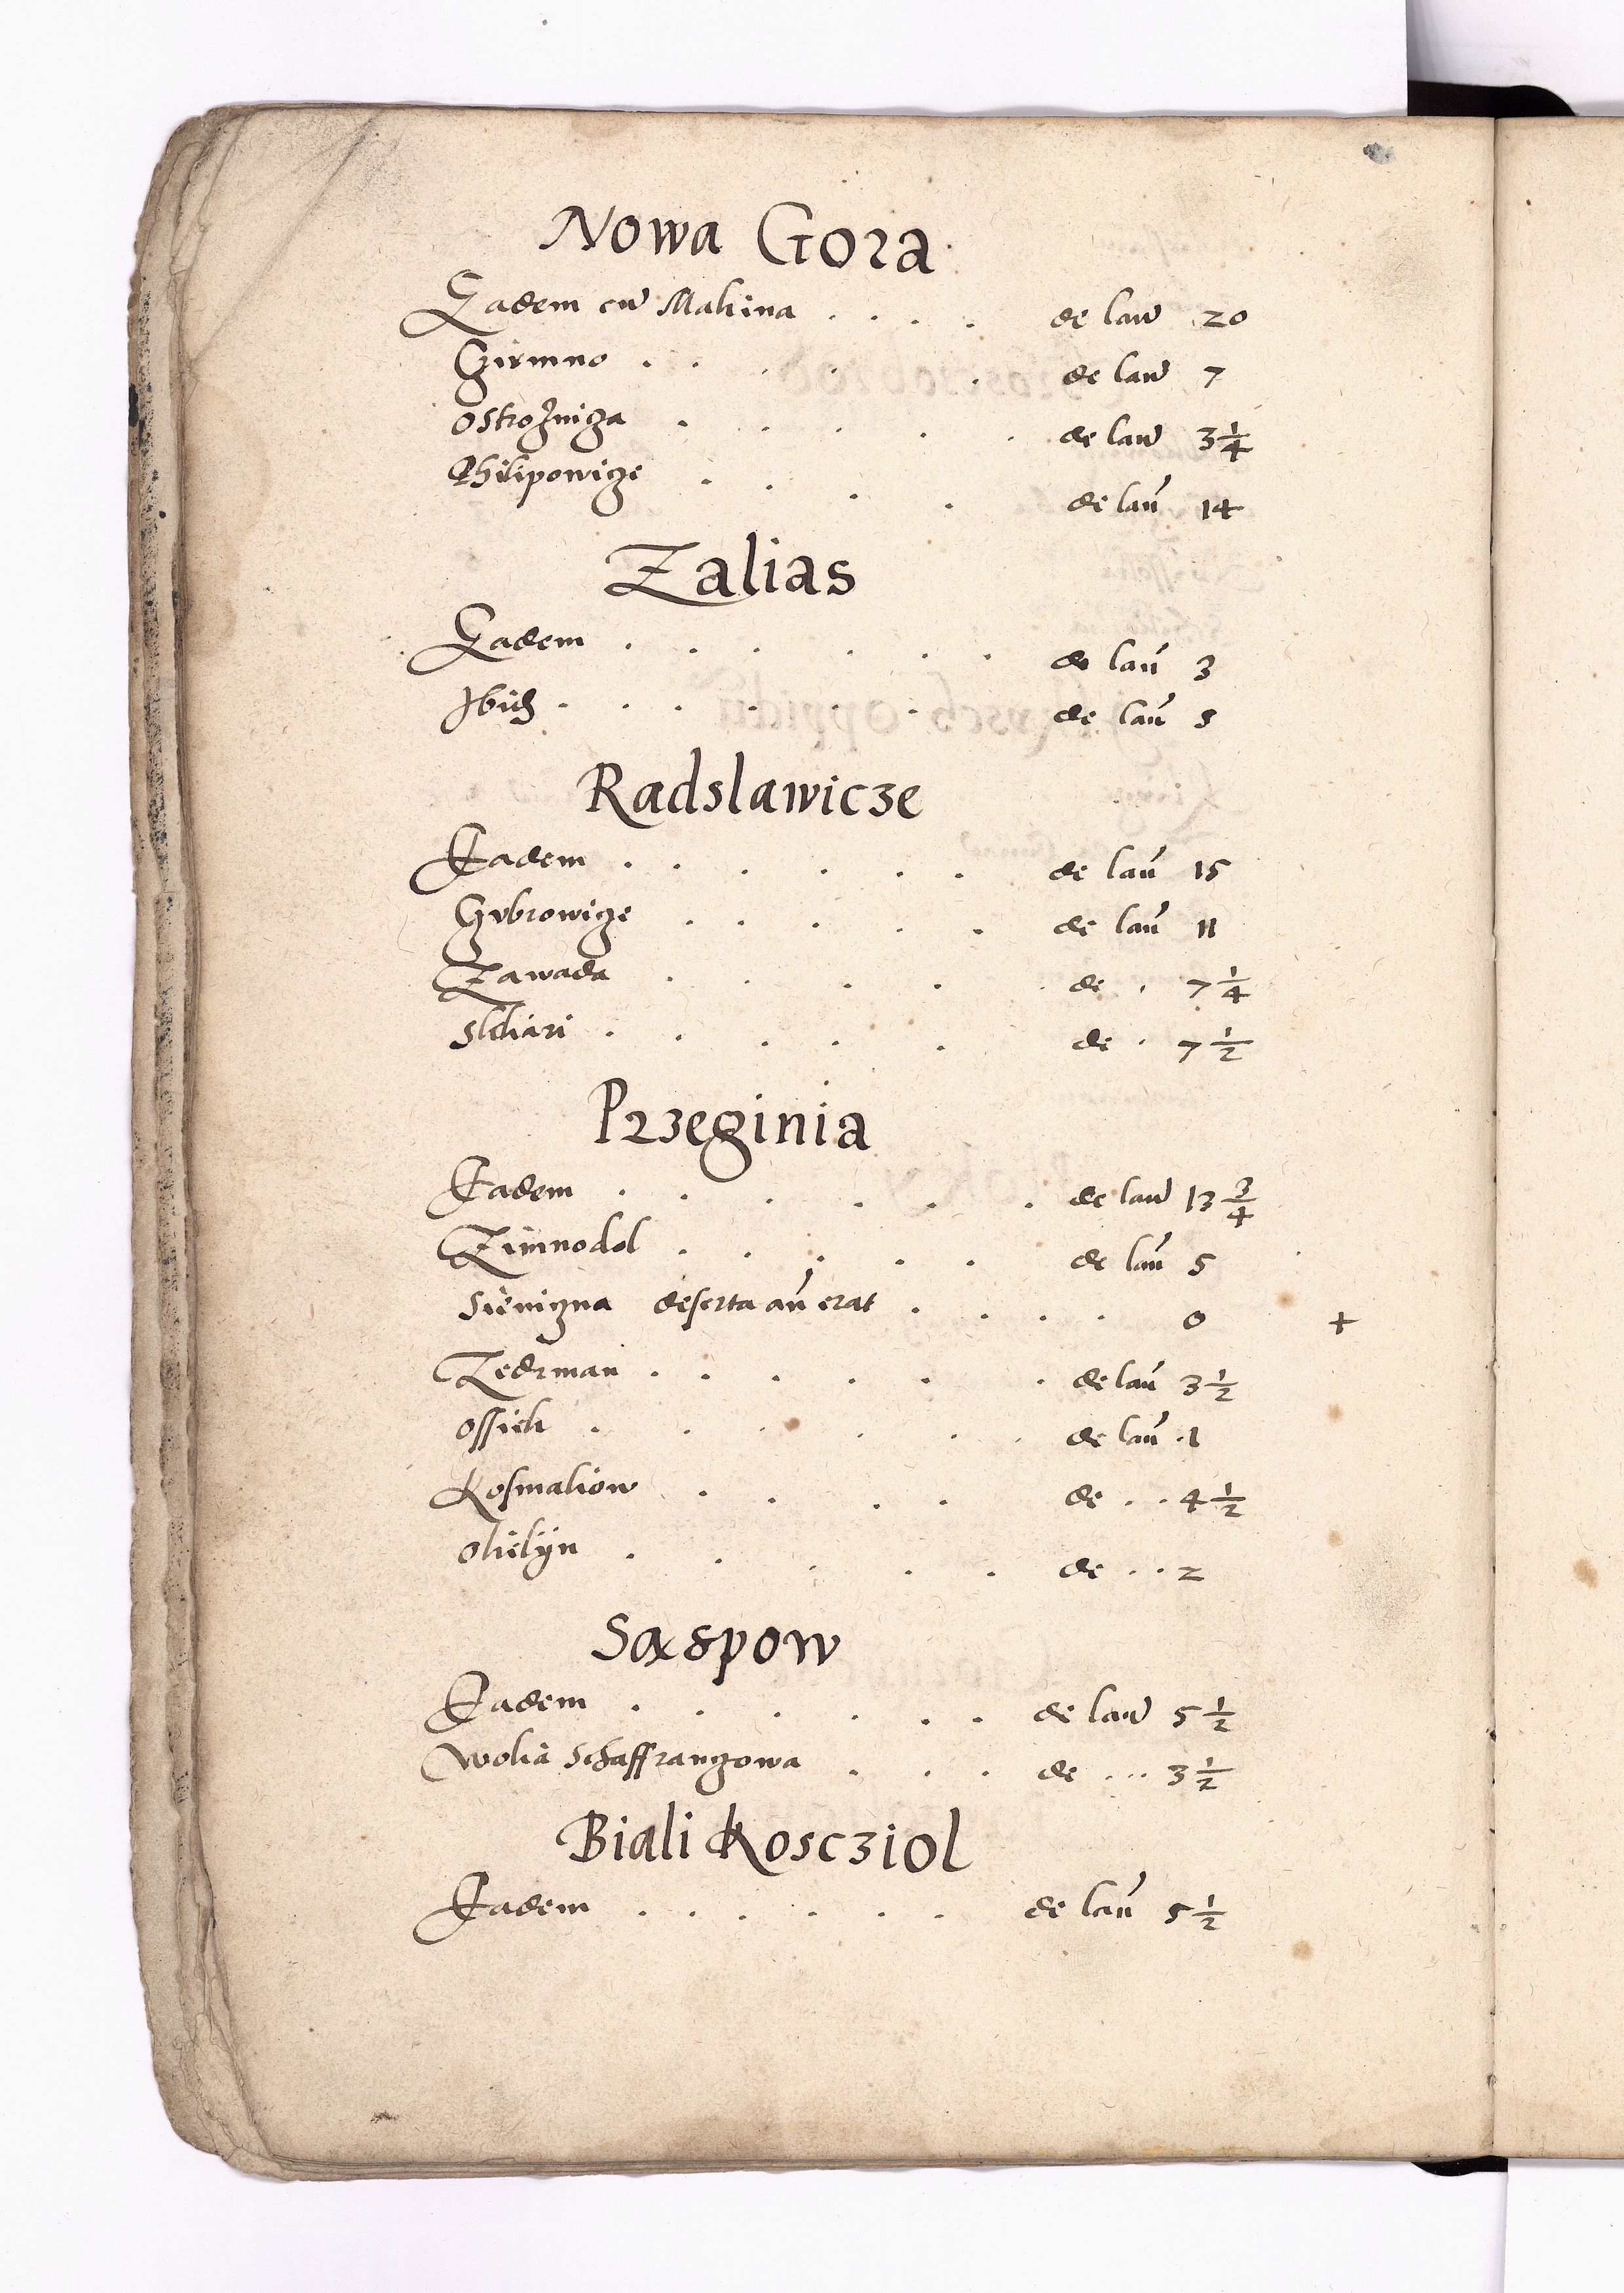 Nowa Gora
Eadem cu᷑ Makina . . . . de lan᷑ 20
Czirnno . . . . . de lan᷑ 7
Ostroznicza . . . . . de lan᷑ 3 1/4
Philipowicze . . . . de lan᷑ 14
Zalias
Eadem . . . . . . de lan᷑ 3
Jbich . . . . . . de lan᷑ 5
Radslawicze
Eadem . . . . . . de lan᷑ 15
Czvbrowicze . . . . . de lan᷑ 11
Zawada . . . . de . 7 1/4
Sklari . . . . . de . 7 1/2
Przeginia
Eadem . . . . . . de lan᷑ 13 3/4
Zimnodol . . . . . de lan᷑ 5
Sieniczna deserta an᷑ erat . . . . 0 +
Zedrman . . . . . . de lan᷑ 3 1/2
Ossiek . . . . . . de lan᷑ 1
Kosmaliow . . . . de . . 4 1/2
Olielyn . . . . . de . . 2
Saxspow
Eadem . . . . . . de lan᷑ 5 1/2
Wolia Schaffranczowa . . . de ... 3 1/2
Biali Koscziol
Eadem . . . . . . de lan᷑ 5 1/2